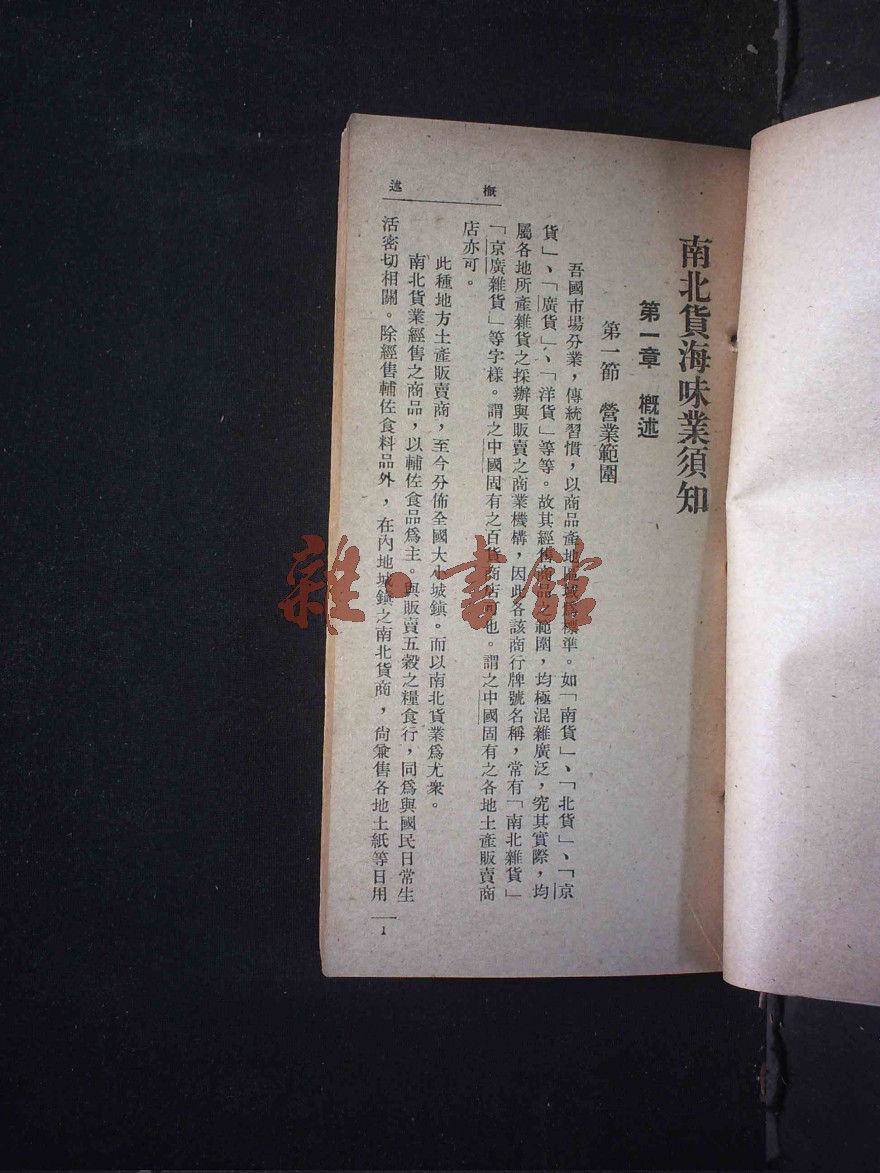 南北貨海味業須知
第一章　概述
第一節　營業範圍
吾國市場分業，傳統習慣，以商品產地區域爲標準。如「南貨」、「北貨」、「京
貨」、「廣貨」、「洋貨」等等。故其經售商品之範圍，均極混雜廣泛，究其實際，均
屬各地所產雜貨之採辦與販賣之商業機構，因此各該商行牌號名稱，常有「南北雜貨」
「京廣雜貨」等字樣。謂之中國固有之百貨商店可也。謂之中國固有之各地土產販賣商
店亦可。
此種地方土產販賣商，至今分佈全國大小城鎮。而以南北貨業爲尤衆。
南北貨業經售之商品，以輔佐食品爲主。與販賣五穀之糧食行，同爲與國民日常生
活密切相關。除經售輔佐食料品外，在內地城鎮之南北貨商，尙兼售各地土紙等日用
概述
1
雜·書館